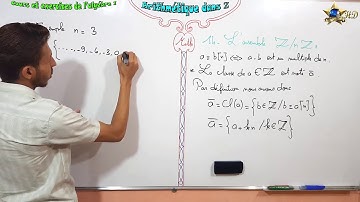 Cours et exercices de l'algèbre 1
Arithmétique dans Z
n = 3
{......-9, -6, -3, 0,
Math
1b. L'ensemble Z/nZ:
a ≡ b[n] ⇔ a-b est un multiple de n.
* La classe de a ∈ Z est noté ā
Par définition nous avons donc
ā = Cl(a) = {b ∈ Z / b ≡ a[n]}
ā = {a + kn / k ∈ Z}